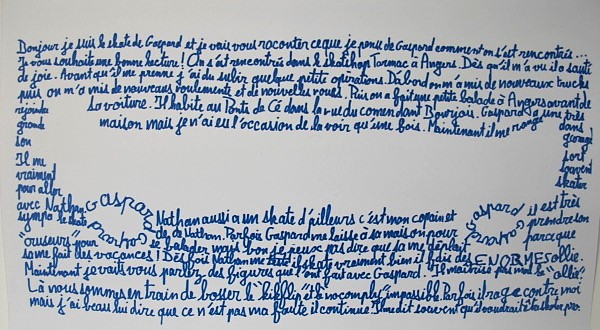 Bonjour je suis le skate de Gaspard et je vais vous raconter ce que je pense de Gaspard comment on s'est rencontrés...
Je vous souhaite une bonne lecture! On s'est rencontrés dans le skateshop Tormac à Angers. Dès qu'il m'a vu il a sauté
de joie. Avant qu'il me prenne j'ai du subir quelque petite operations D'abord on m'a mis de nouveaux trucks
puis on m'a mis de nouveaux roulements et de nouvelles roues. Puis on a fait une petite balade à Angers avant de
rejoindre sa voiture. Il habite au Ponts de Cé dans la rue du comendant Bourjois. Gaspard a une très
grande maison mais je n'ai eu l'occasion de la voir qu'une fois. Maintenant il me range dans
son garage
Il me sort
vraiment souvent
pour aller skater
avec Nathan il est très
sympa le skate Gaspard Gaspard Nathan aussi a un skate d'ailleurs c'est mon copain et Gaspard Gaspard prendre son
de de Nathan. Parfois Gaspard me laisse à sa maison pour parce que
"cruiseurs" pour se balader mais bon je peux pas dire que sa me déplait
sa me fait des vacances! Dès fois Nathan me skate il skate vraiment bien il fais des ENORMES ollie.
Maintenant je vais vous parler des figures que l'ont fait avec Gaspard. Il maitrise pas mal le "ollie"
Là nous sommes en train de bosser le "kickflip" et le "no comply" impossible. Parfois il rage contre moi
mais j'ai beau lui dire que ce n'est pas ma faute il continue. Il me dit souvent qu'il voudrait être skater pro.